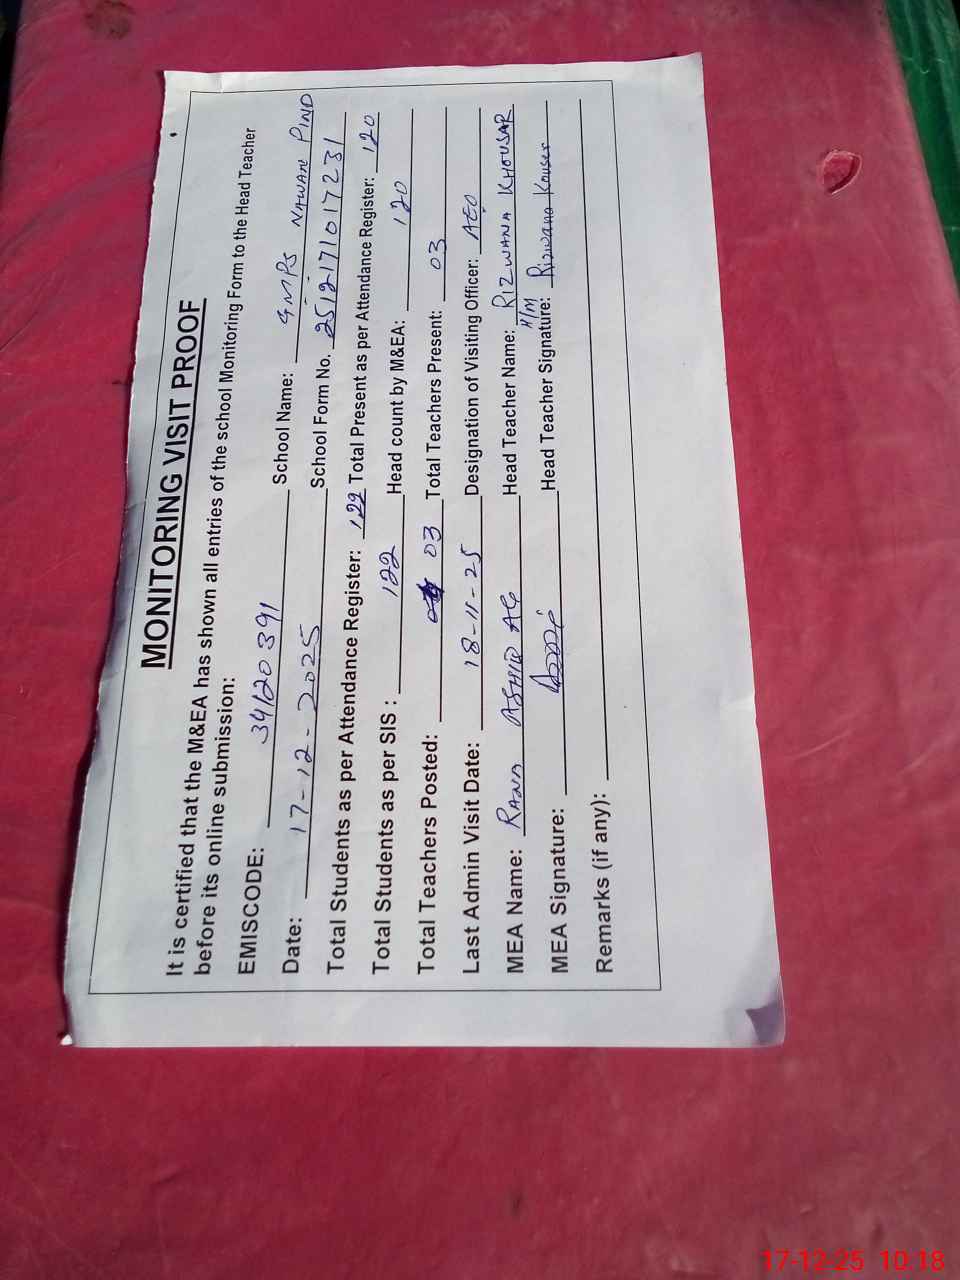 MONITORING VISIT PROOF
It is certified that the M&EA has shown all entries of the school Monitoring Form to the Head Teacher
before its online submission:
EMISCODE: 34120391 School Name: GMPS NAWAN PIND
Date: 17-12-2025 School Form No. 2512171017231
Total Students as per Attendance Register: 122 Total Present as per Attendance Register: 120
Total Students as per SIS : 122 Head count by M&EA: 120
Total Teachers Posted: 03 Total Teachers Present: 03
Last Admin Visit Date: 18-11-25 Designation of Visiting Officer: AEO
MEA Name: RANA ASHIQ Head Teacher Name: RIZWANA KHOUSAR
H/M
MEA Signature: Head Teacher Signature: Rizwana Kouser
Remarks (if any):
17-12-25 10:18